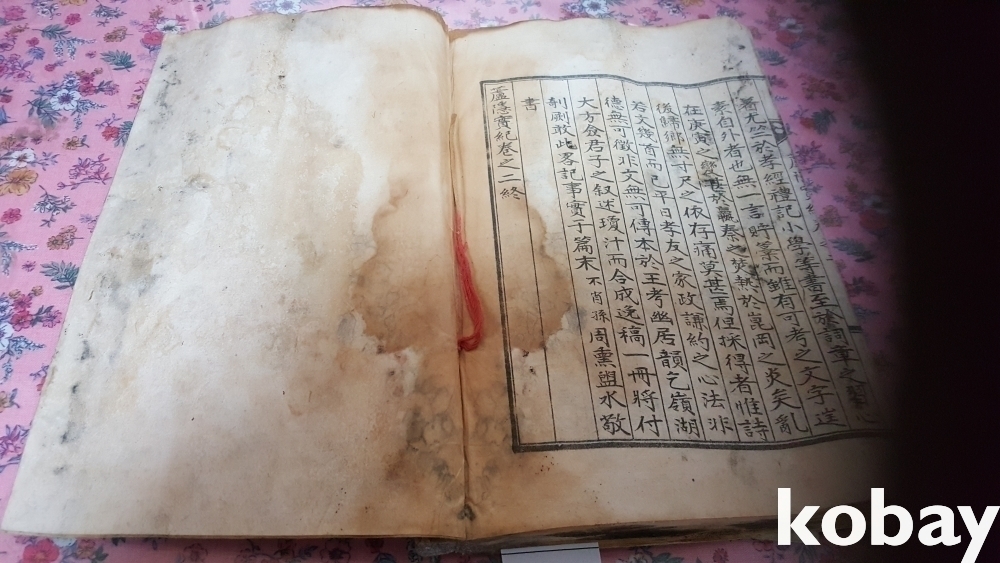 着尤竺於孝經禮記小學等書至於詞章之
素自外者也無
在庚寅之變甚於嬴秦之焚熱於崑岡之炎矣亂
後歸鄉無寸尺之依存痛莫甚焉但採得者惟詩
若文幾首而已平日孝友之家政謙約之心法非
德無可徵非文無可傳本於王考幽居韻乞嶺湖
大方僉君子之叙述瓊汁而合成逸稿一冊將付
剞劂敢此畧記事實于篇末不肖孫周熏盥水敬
書
廬隱實紀卷之二終
kobay